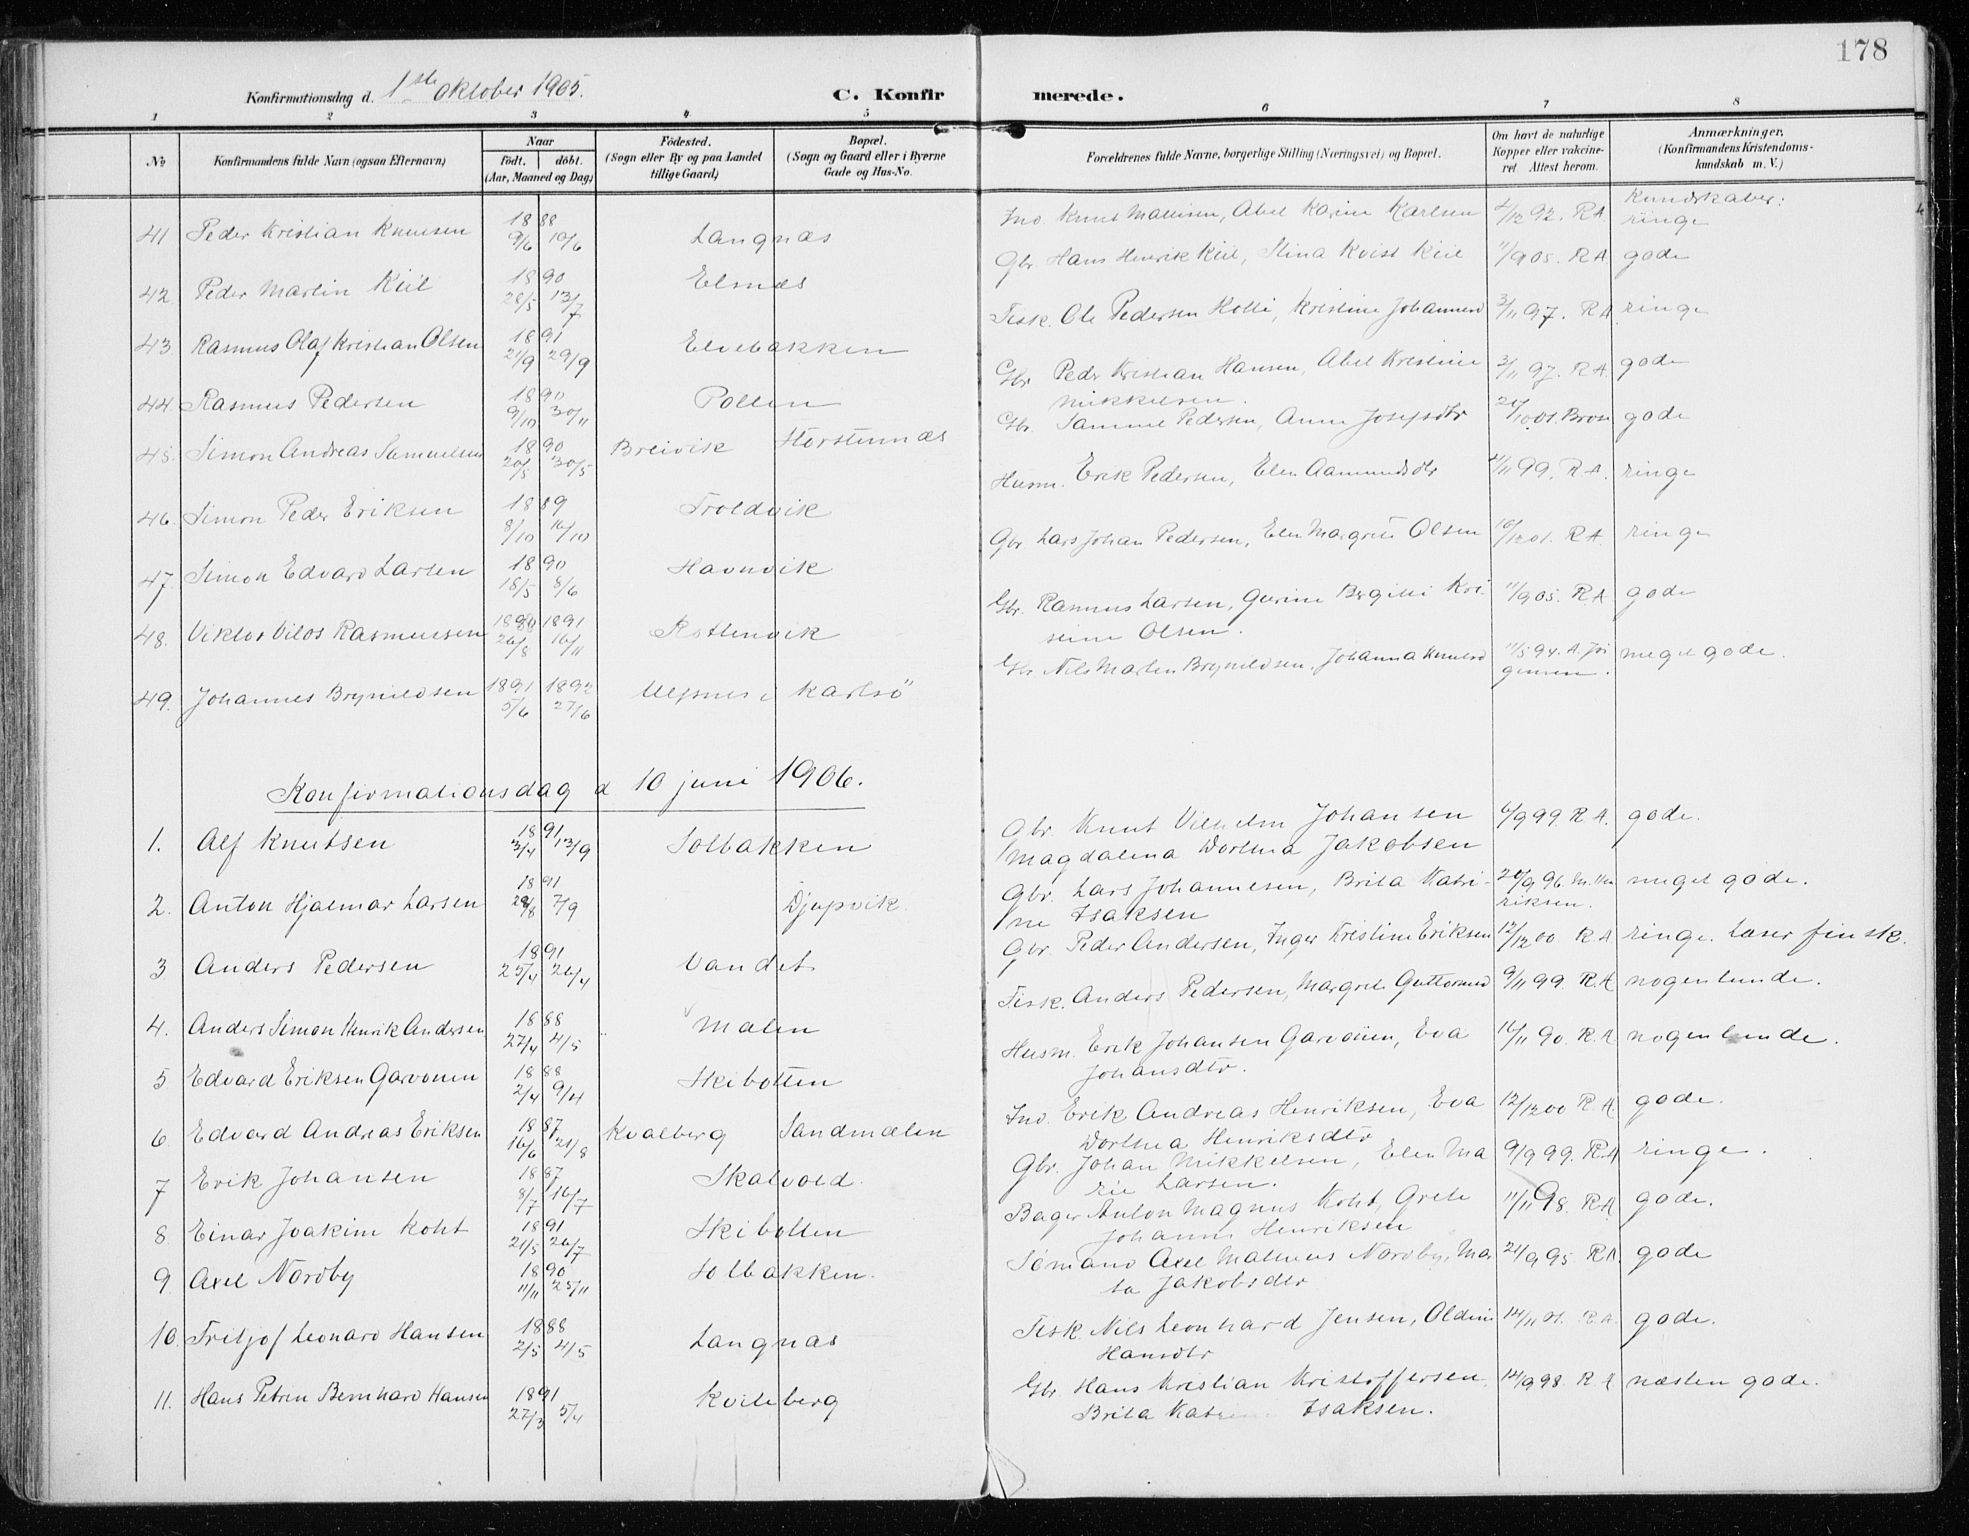 178
Konfirmationsdag d. 1ste oktober 1905.
C. Konfirmerede.
1 2 3 4 5 6 7 8
No
Konfirmandens fulde Navn (ogsaa Efternavn)
Naar
født, døbt.
(Aar, Maaned og Dag)
Fødested.
(Sogn eller By og paa Landet
tillige Gaard)
Bopæl.
(Sogn og Gaard eller i Byerne
Gade og Hus-No.
Forældrenes fulde Navne, borgerlige Stilling (Næringsvei) og Bopæl.
Om havt de naturlige
Kopper eller vakcine-
ret Attest herom.
Anmærkninger,
(Konfirmandens Kristendoms-
kundskab m. V.)
Kundskaber:
41 Peder Kristian Knutsen 1888 9/6 10/6 Langnæs Ind. Knut Mathisen, Abel Karine Karlsen 4/12 92. R A ringe
42 Peder Martin Kiil 1890 28/5 13/7 Elsnæs Gbr. Hans Henrik Kiil, Stina Kvist Kiil 11/9 05. R A gode
43. Rasmus Olaf Kristian Olsen 1891 21/9 29/9 Elvebakken Fisk. Ole Pedersen Holti, Kristine Johannesd 3/11 97. R A ringe
44 Rasmus Pedersen 1890 9/10 30/11 Pollen Gbr. Peder Kristian Hansen, Abel Kristine
Mikkelsen. 3/11 97. R A. gode
45. Simon Andreas Samuelsen 1890 20/5 30/5 Breivik Horstennæs Gbr. Samuel Pedersen, Anne Josefsdtr 20/10 01. Brosn gode
46. Simon Peder Eriksen 1889 8/10 16/10 Troldvik Husm. Erik Pedersen, Elen Aamundsdtr 4/11 99. R. A. ringe
47. Simon Edvard Larsen 1890 18/5 8/6 Havnvik Gbr Lars Johan Pedersen, Elen Margret Olsen 10/12 01. R A. ringe
48. Viktor Vilos Rasmussen 1890 1891 26/8 16/11 Rottenvik Gbr. Rasmus Larsen, Gurine Bergitte Kri-
stine Olsen. 11/9 05. R A gode
49. Johannes Brynildsen 1891 1892 5/6 27/6 Ulfsnes i Karlsö Gbr Nils Martin Brynildsen, Johanna Knutsd 11/5 94. A. Jör
gensen. meget gode.
Konfirmationsdag d 10 juni 1906.
1. Alf Knutsen 1891 3/4 13/9 Solbakken Gbr. Knut Vilhelm Johansen
Magdalena Dorthea Jakobsen 6/9 99. R. A. gode.
2. Anton Hjalmar Larsen 1891 28/8 7/9 Djupvik. Gbr. Lars Johannesen, Brita Katri-
ne Isaksen 20/9 96. M. Hen
riksen. meget gode.
3 Anders Pedersen 1891 25/4 26/4 Vandet Gbr. Peder Andersen, Inger Kristine Eriksen 12/12 00 R. A ringe. Læser finsk.
4. Anders Simon Henrik Andersen 1888 27/4 4/5 Malen Fisk. Anders Pedersen, Margrete Guttormsd 9/11 99. R. A nogenlunde.
5 Edvard Eriksen Garvonen 1888 2/4 9/4 Skibotten Husm. Erik Johansen Garvonen, Eva
Johansdtr. 16/11 90. R. A nogenlunde.
6. Edvard Andreas Eriksen 1887 16/6 21/8 Kvalberg Sandmælen Ind. Erik Andreas Henriksen, Eva
Dorthea Henriksdtr 12/12 00 R. A. gode.
7 Erik Johansen 1887 8/7 16/7 Skalvold. Gbr. Johan Mikkelsen, Elen Ma
rie Larsen. 9/9 99. R. A ringe.
8. Einar Joakim Koht 1891 21/5 26/7 Skibotten Bager Anton Magnus Koht, Grete
Johanne Henriksen 11/11 98. R A gode.
9. Axel Nordby 1890 11/11 25/11 Solbakken. Sömand Axel Mathæus Nordby, Ma
ta Jakobsdtr 21/9 95. R A. gode
10. Fritjof Leonard Hansen 1888 2/5 4/5 Langnæs Fisk. Nils Leonhard Jensen, Oldine
Hansdtr 14/11 01. R. A. gode.
11. Hans Petren Bernhard Hansen 1891 27/3 5/4 Kviteberg Gbr. Hans Kristian Kristoffersen
Brita Katrine Isaksen. 14/9 98. R A næsten gode.